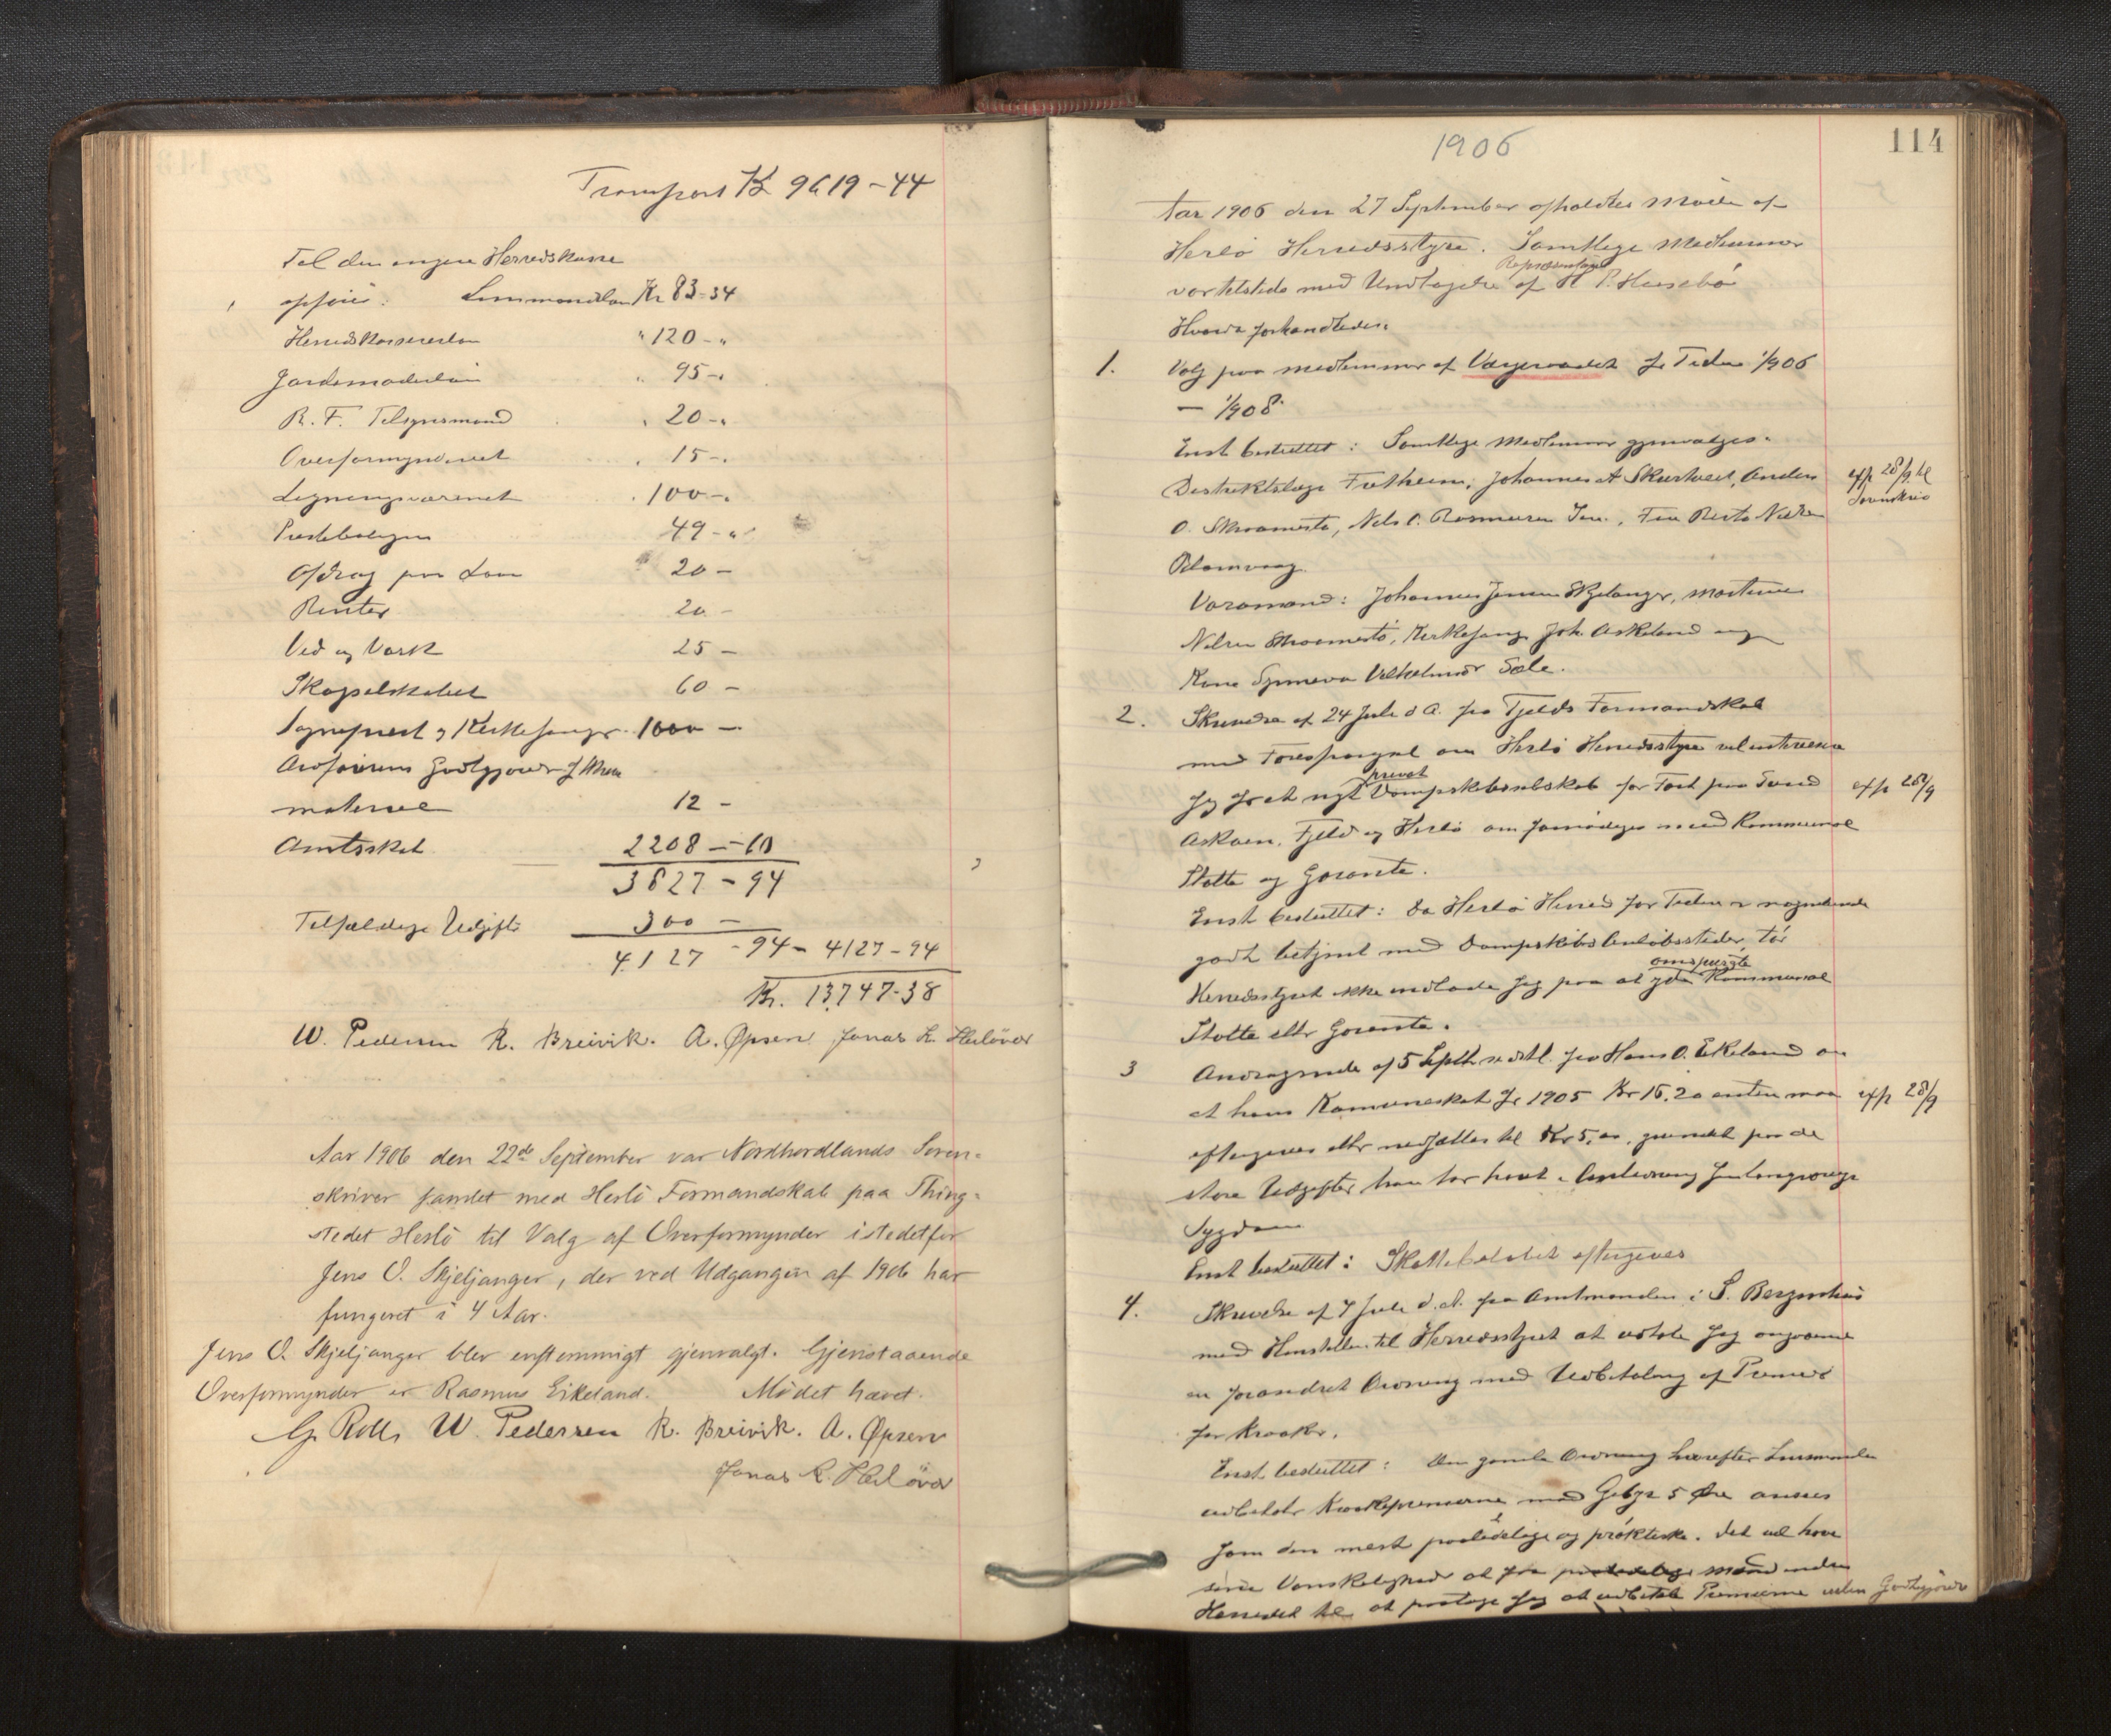 Transport Kr 9619-44
Til den egne Herredskasse
opføres: Lensmandsløn Kr 83-34
Herredskasserløn " 120-"
Jordemoderløn " 95-"
R. F. Tilsynsmand " 20-"
Overformynderiet " 15-"
Ligningsvæsenet " 100-"
Prestebolig 49-"
Afdrag paa Laan 20-
Renter 20-
Ved og Vask 25-
Skogselskabet 60-
Sogneprest og Kirkesanger 1000-
Godtgjørelse
materiel 12-
Amtsskat 2208-60
3827-94
Tilfældige Udgifter 300-
4127-94- 4127-94
Kr. 13,747-38
W. Pedersen R. Breivik. A. Øpsen Jonas L. Herløver
Aar 1906 den 22de September var Nordhordlands Soren-
skriver samlet med Herlö Formandskab paa Thing-
stedet Herlö til Valg af Overformynder istedetfor
Jens O. Skjeljanger, der ved Udgangen af 1906 har
fungeret i 4 Aar.
Jens O. Skjeljanger blev enstemmigt gjenvalgt. Gjenstaaende
Overformynder er Rasmus Eikeland. Mödet hævet.
G. Roll W. Pedersen R. Breivik. A. Øpsen
Jonas L. Herlöver
1906
114
Aar 1906 den 27 September afholdtes Møde af
Herlö Herredsstyre. Samtlige Medlemmer
var tilstede med Undtagelse af Repræsentant P. Husebö
Hvorda forhandledes:
1. Valg paa medlemmer af Vergeraadet for Tiden 1/1 906
- 1/1 908.
Enst besluttet: Samtlige Medlemmer gjenvalges.
Distriktslæge Fretheim, Johannes A Skurtveit, Anders
O. Skraamestö, Nels O. Rasmussen , Fru Nielsen
Blomvaag.
exp 28/9 til
Sorenskriv
Varamænd: Johannes Jensen Skjelanger, Martinus
Nilsen Skraamestö, Kirkesanger Joh. Askeland og
Kone Synneva Vilhelmsdr Sæle.
2. Skrivelse af 24 Juli d A. fra Fjelds Formandskab
med Forespørgsel om Herlö Herredsstyre vil interessere
sig for et nyt privat Dampskibsselskab for Fart paa Sund
Askøen, Fjeld og Herlö om fornödiges med Kommunal
Støtte og Garanti.
exp 28/9
Enst besluttet: Da Herlö Herred for Tiden er nogenlunde
godt betjent med Dampskibs Anløbssteder, tör
Herredsstyret ikke indlade sig paa at yde omspurgte Kommunal
Støtte eller Garanti.
3 Andragende af 5 Septbr sidstl. fra Hans O. Eikeland om
at hans Kommuneskat for 1905 Kr 16.20 enten maa
eftergives eller nedsættes til Kr 5,00, grundet paa de
store Udgifter han har havt i Anledning sin langvarige
Sygdom
exp 28/9
Enst besluttet: Skattebeløbet eftergives
4. Skrivelse af 7 Juli d. A. fra Amtmanden i S. Bergenhus
med Henstillen til Herredsstyret at udtale sig angaaende
en forandret Ordning med Udbetaling af Præmier
for Kraaker.
Enst besluttet: Den gamle Ordning hvorefter Lensmanden
udbetaler Kraakepræmierne mod Gebyr 5 Øre ansees
som den mest paalidelige og praktiske. Det vil have
sine Vanskeligheder at faa mænd inden
Herredet til at paatage sig at udbetale Præmierne uden Godtgjørelse